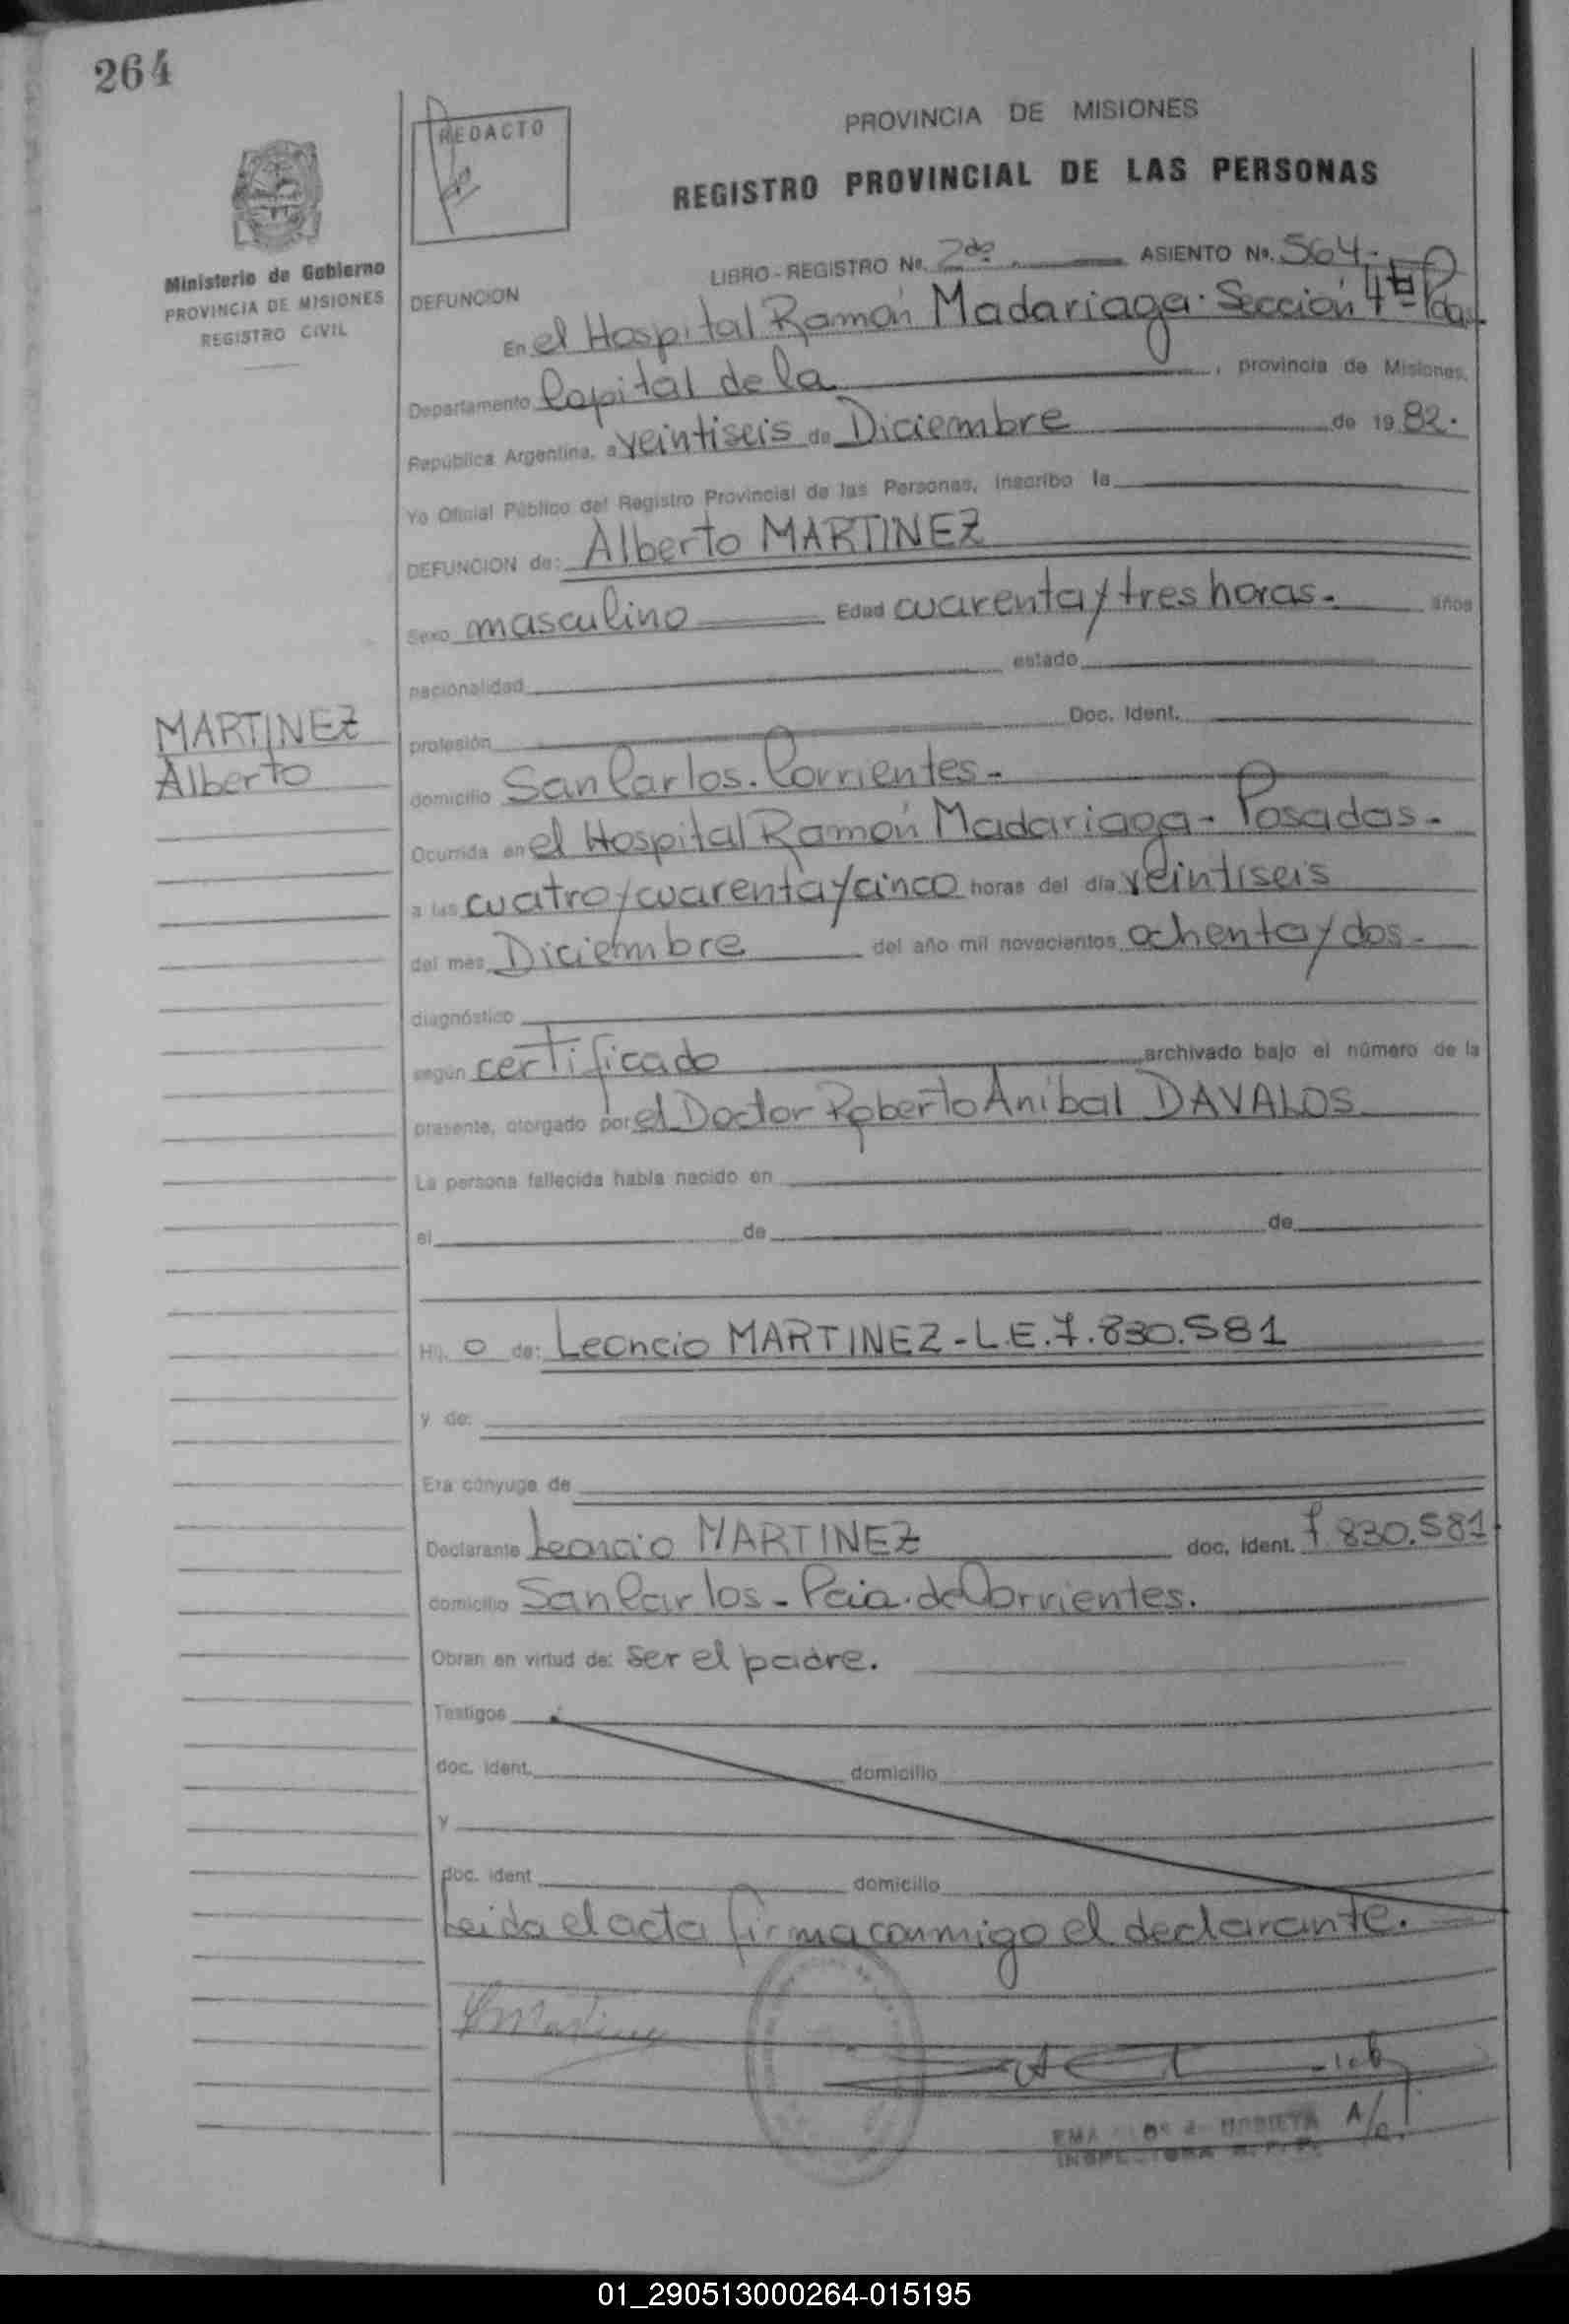 264
REDACTO
PROVINCIA DE MISIONES
REGISTRO PROVINCIAL DE LAS PERSONAS
Ministerio de Gobierno
PROVINCIA DE MISIONES
REGISTRO CIVIL
LIBRO - REGISTRO No. 2do ASIENTO No. 564.-
DEFUNCION
En el Hospital Ramón Madariaga. Sección 4ta Pdas
Departamento Capital de la, provincia de Misiones,
República Argentina, a veintiseis de Diciembre de 1982.
Yo Oficial Público del Registro Provincial de las Personas, inscribo la
DEFUNCION de: Alberto MARTINEZ
Sexo masculino Edad cuarenta y tres horas.- años
nacionalidad estado
profesión Doc. Ident.
MARTINEZ
Alberto
domicilio San Carlos. Corrientes.-
Ocurrida en el Hospital Ramón Madariaga - Posadas.-
a las cuatro y cuarenta y cinco horas del día veintiseis
del mes Diciembre del año mil novecientos ochenta y dos.-
diagnóstico
según certificado archivado bajo el número de la
presente, otorgado por el Doctor Roberto Anibal DAVALOS
La persona fallecida había nacido en
el de de
Hij o de: Leoncio MARTINEZ - L.E. 7.830.581
y de:
Era cónyuge de
Declarante Leoncio MARTINEZ doc. ident. 7.830.581
domicilio San Carlos - Pcia. de Corrientes.
Obran en virtud de: ser el padre.
Testigos
doc. ident. domicilio
y
doc. ident domicilio
Leida el acta firma conmigo el declarante.
L Martinez
A/c.
01_290513000264-015195